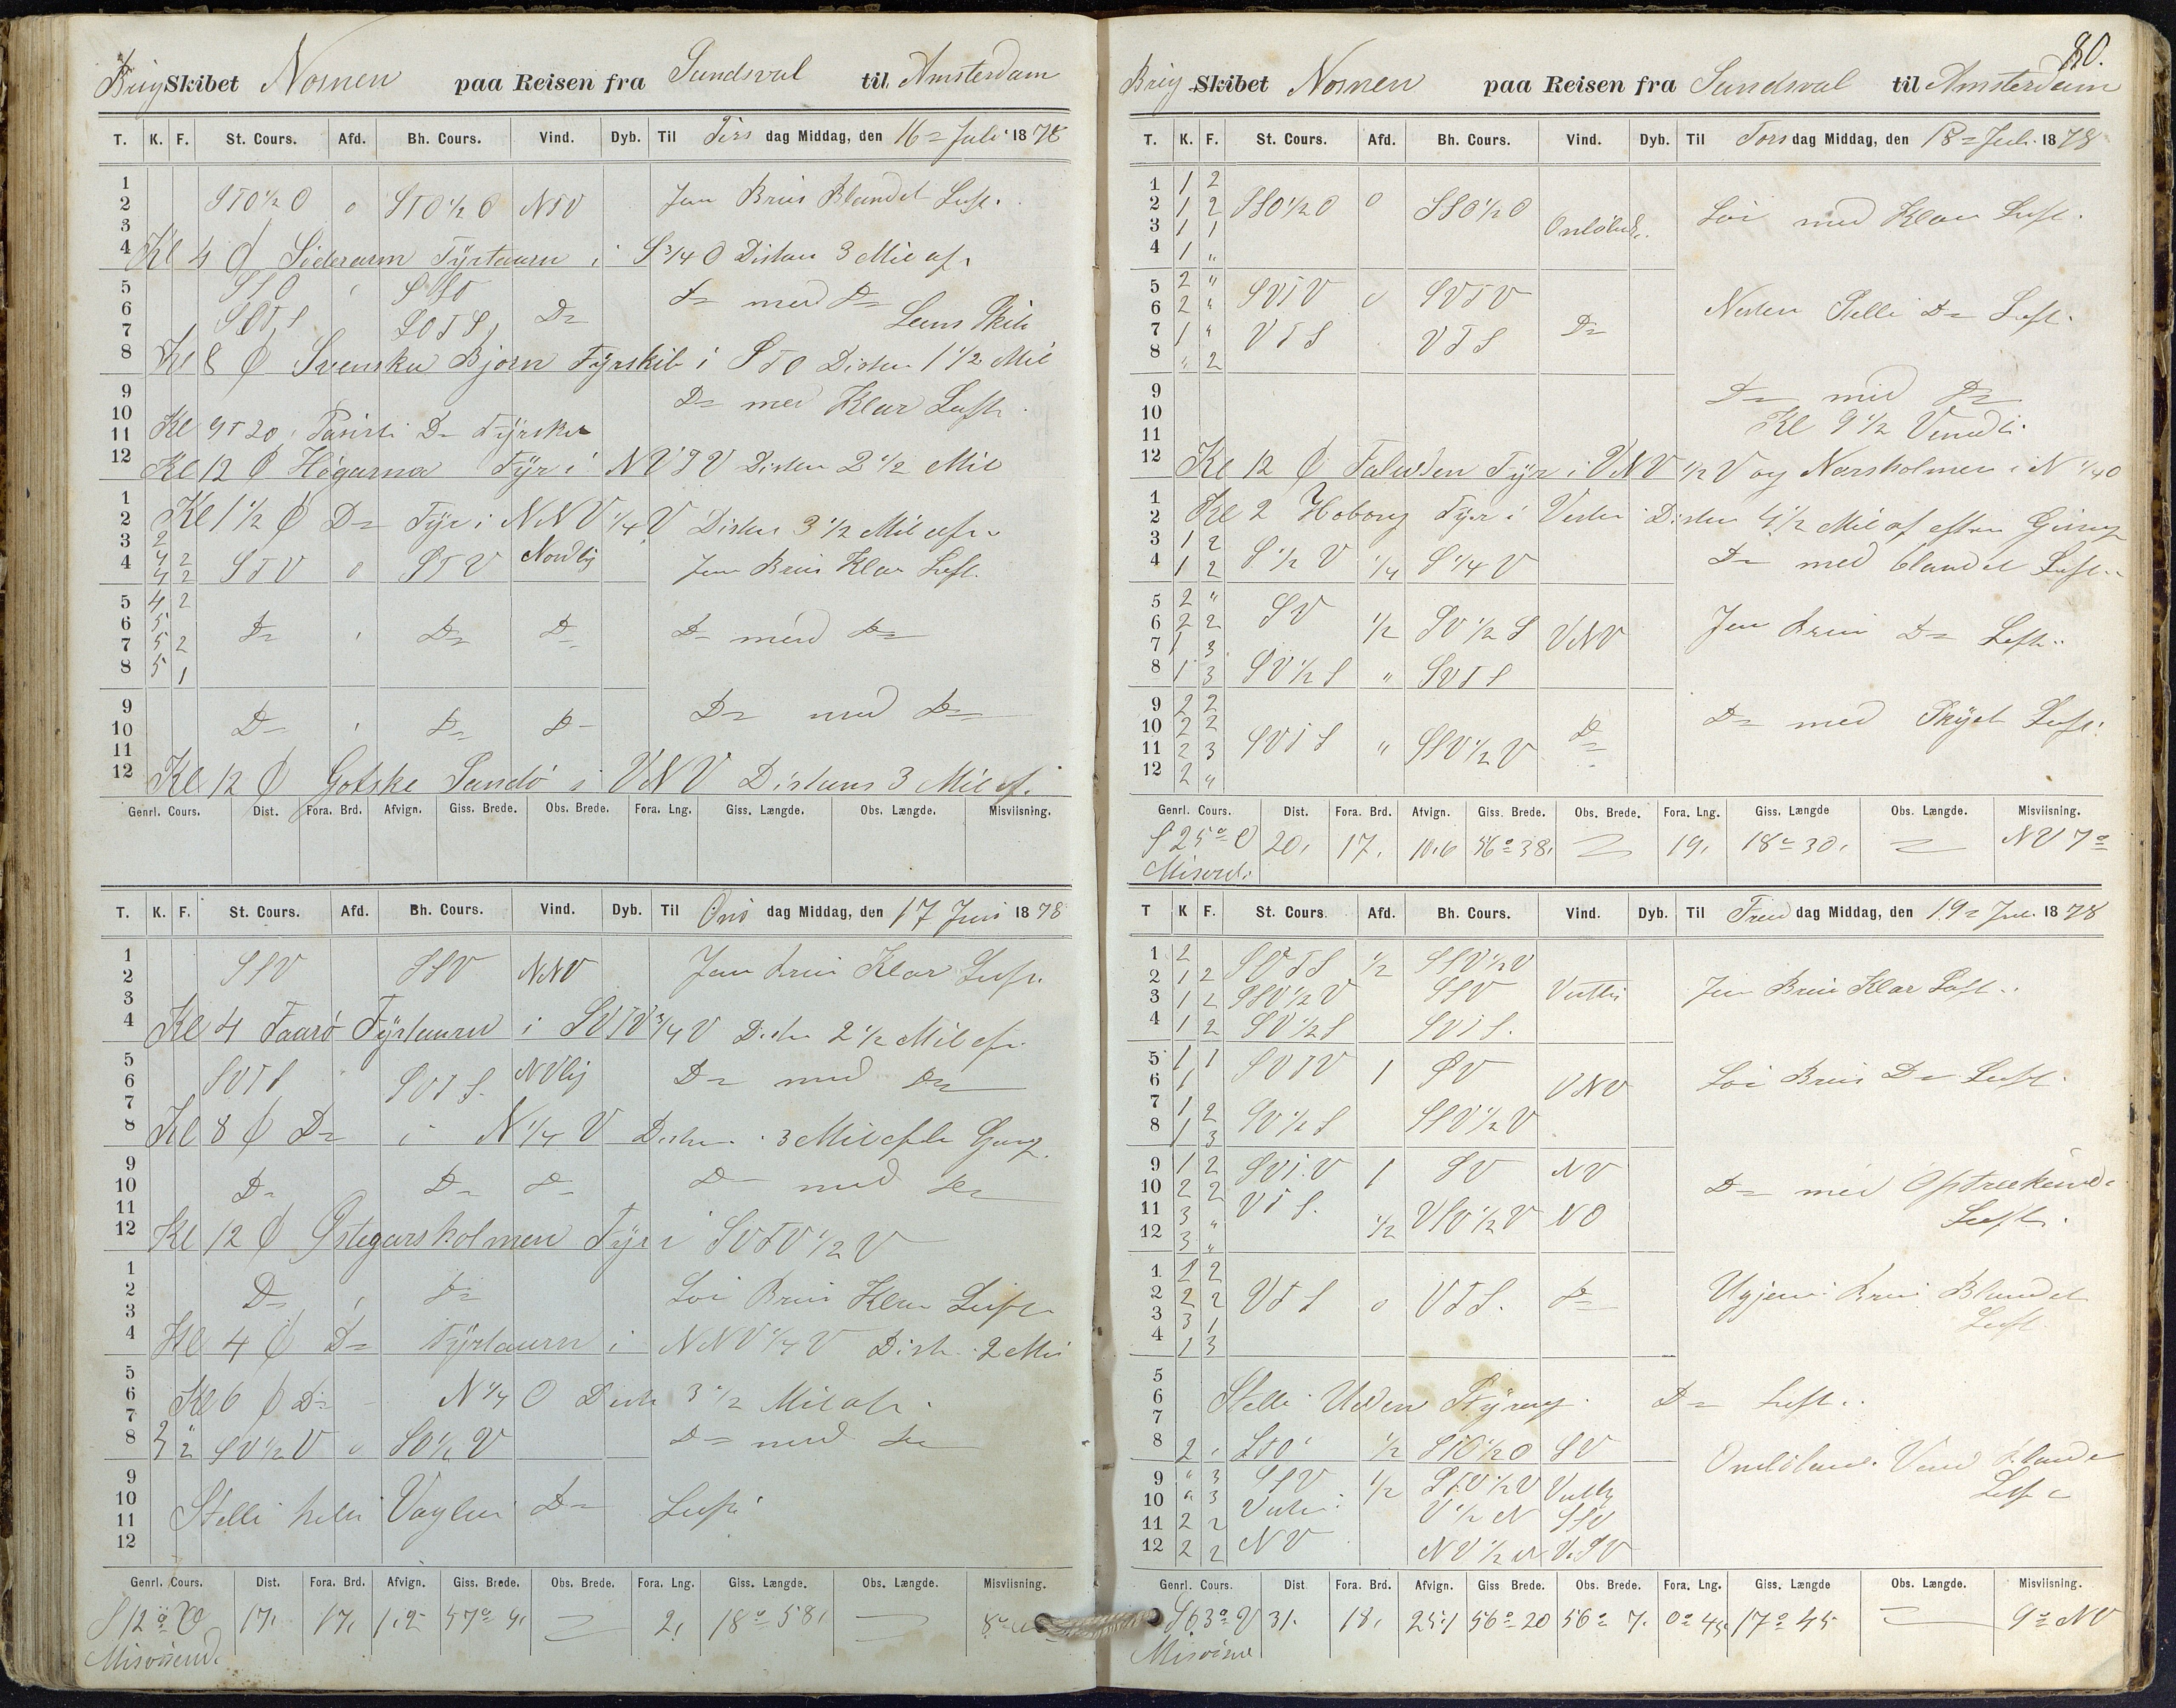 Brig Skibet Nornen paa Reisen fra Sundsval til Amsterdam
T. K. F. St. Cours. Afd. Bh. Cours. Vind. Dyb. Til Tirs dag Middag, den 16 = Juli 1878
1
2 STO 1/2 O 0 STO 1/2 O NTV Jevn Bris Blandet Luft.
3
4 Kl 4 Ø Söderarm Fÿrtaarn i S 3/4 O Distan 3 Mil af.
5 SSO SSO
6 SOTS SOTS D= D= med D=
7 Lens Skib
8 Kl 8 Ø Svenska Bjorn Fÿrskib i STO Distan 1 1/2 Mil
9 D= med Klar Luft.
10
11 Kl 9T 20 Paserti D= Fÿrskib
12 Kl 12 Ø Högarna Fÿr i NVTV Distan 2 1/2 Mil
1
2 Kl 1 1/2 Ø D= Fÿr i NNV 1/4 V Distan 3 1/2 Mil af.
3 2
4 4 2 STV 0 STV Nordlig Jevn Bris Klar Luft.
4 2
5 4 2
6 5 D= D= D= D= med D=
7 5 2
8 5 1
9 D= D= D= D= med D=
10
11
12 Kl 12 Ø Gotske Sandö i VNV Distans 3 Mil af.
Genrl. Cours. Dist. Fora. Brd. Afvign. Giss. Brede. Obs. Brede. Fora. Lng. Giss. Længde. Obs. Længde. Misviisning.
T. K. F. St. Cours. Afd. Bh. Cours. Vind. Dyb. Til Ons dag Middag, den 17 Juni 1878
1
2 SSV SSV NNV Jevn Bris Klar Luft.
3
4 Kl 4 Faarö Fÿrtaarn i SVTV 3/4 V Distan 2 1/2 Mil af.
5
6 SVTS SVTS. NVlig D= med D=
7
8 Kl 8 Ø D= i N 1/4 V Distan 3 Mil efter Gisng.
9
10 D= D= D= D= med D=
11
12 Kl 12 Ø Östegarsholmen Fÿr i SVTV 1/2 V
1
2 D= D= Löi Bris Klar Luft
3
4 Kl 4 Ø D= Fÿrtaarn i NNV 1/4 V Dist. 2 Mil
5
6 Kl 6 Ø D= N 1/4 O Dist 3 1/2 Mil af.
7
8 SV 1/2 V SV 1/2 V D= med D=
9
10 Stelle D= Luft
11
12
Genrl. Cours. Dist. Fora. Brd. Afvign. Giss. Brede. Obs. Brede. Fora. Lng. Giss. Længde. Obs. Længde. Misviisning.
S 12° V 17. 17. 1.2 57° 4. 2. 18° 58.
Misvisend.
80.
Brig Skibet Nornen paa Reisen fra Sundsval til Amsterdam
T. K. F. St. Cours. Afd. Bh. Cours. Vind. Dyb. Til Tors dag Middag, den 18 = Juli 1878
1 1 2
2 1 2 SSO 1/2 O 0 SSO 1/2 O Löi med Klar Luft.
3 1 1 Omlöbnd.
4 1 "
5 2 " SVTV 0 SVTV
6 2 " Nesten Stelle D= Luft.
7 1 " VTS VTS D=
8 " 2
9 D= med D=
10
11 Kl 9 1/2 Vendt.
12 Kl 12 Ø Faludden Fÿr i VNV 1/2 V og Narsholmen i N 1/4 O
1
2 Kl 2 Hoborg Fÿr i Vesten Distan 4 1/2 Mil af efter Gisng
3 1 2
4 1 2 S 1/2 V 1/4 S 1/4 V D= med blandet Luft.
5 2 " SV
6 2 2 1/2 SV 1/2 S VNV Jevn Bris D= Luft.
7 1 3
8 1 3 SV 1/2 S " SVTS
9 2 2
10 2 2 D= D= med Skÿet Luft.
11 2 3 SVTS " SSV 1/2 V
12 2 "
Genrl. Cours. Dist. Fora. Brd. Afvign. Giss. Brede. Obs. Brede. Fora. Lng. Giss. Længde Obs. Længde. Misviisning.
S 25° O 20. 17. 10.6 56° 38. 19. 18° 30. NV 7°
Misvisd.
T K F. St. Cours. Afd. Bh. Cours. Vind. Dyb. Til Fred dag Middag, den 19 = Jul. 1878
1 2 SVTS 1/2 SSV 1/2 V
2 1 2 Jevn Bris Klar Luft.
3 1 2 SSV 1/2 V SSV Vestlig
4 1 2 SV 1/2 S SVTS.
5 1 1 SVTV 1 SV
6 1 VNV Löi Bris D= Luft.
7 1 2
8 1 3 SV 1/2 S SSV 1/2 V
9 1 2 SVTV 1 SV NV
10 2 2 VTS. D= med Optrækende
11 3 " 1/2 VSV 1/2 V NO Luft.
12 3 "
1 2 2
2 2 2 VTS 0 VTS. D= Ugjevn Bris Blandet
3 3 1 Luft
4 1 3
5
6 Stelle Uden Stÿring D= Luft.
7
8 2 STO 1/2 STO 1/2 O SV Omlöbend. Vind bland
9 " 3 SSV 1/2 STV 1/2 V Vestlig Luft
10 " 3 Vesten V 1/2 N SSV
11 2 2
12 2 2 NV NV 1/2 N VSV
Genrl. Cours. Dist Fora. Brd. Afvign. Giss Brede. Obs. Brede. Fora. Lng. Giss. Længde Obs. Længde. Misviisning.
S 63° V 31. 18. 25.1 56° 20 56° 7. 0° 45. 17° 45 9° NV
Misvisnd